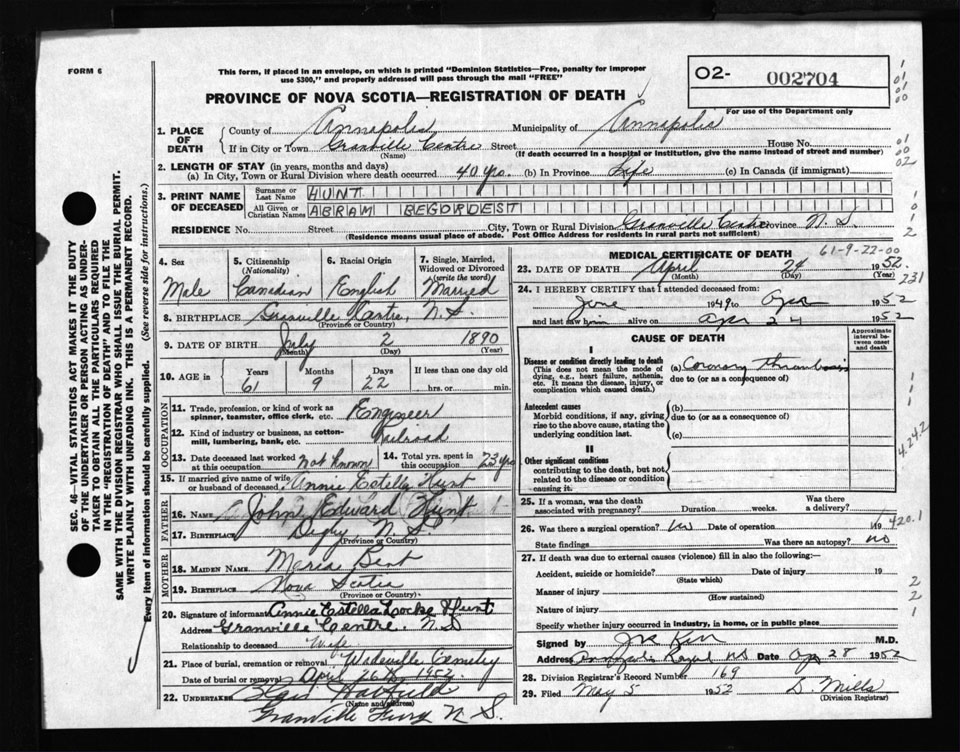 FORM 6
This form, if placed in an envelope, on which is printed "Dominion Statistics—Free, penalty for improper
use $300," and properly addressed will pass through the mail "FREE"
02- 002704
For use of the Department only
PROVINCE OF NOVA SCOTIA—REGISTRATION OF DEATH
1. PLACE OF DEATH
County of Annapolis Municipality of Annapolis
If in City or Town Granville Centre Street House No.
(Name) (If death occurred in a hospital or institution, give the name instead of street and number)
2. LENGTH OF STAY (in years, months and days)
(a) In City, Town or Rural Division where death occurred 40 yrs. (b) In Province Life (c) In Canada (if immigrant)
3. PRINT NAME OF DECEASED
Surname or Last Name HUNT
All Given or Christian Names ABRAM BEGORDEST
RESIDENCE No. Street City, Town or Rural Division Granville Centre Province N.S.
(Residence means usual place of abode. Post Office Address for residents in rural parts not sufficient)
4. Sex Male
5. Citizenship (Nationality) Canadian
6. Racial Origin English
7. Single, Married, Widowed or Divorced (write the word) Married
8. BIRTHPLACE Granville Centre, N.S.
(Province or Country)
9. DATE OF BIRTH July 2 1890
(Month) (Day) (Year)
10. AGE in Years Months Days If less than one day old
61 9 22 hrs. or min.
OCCUPATION
11. Trade, profession, or kind of work as spinner, teamster, office clerk, etc. Engineer
12. Kind of industry or business, as cotton-mill, lumbering, bank, etc. Railroad
13. Date deceased last worked at this occupation not known
14. Total yrs. spent in this occupation 23 yrs
15. If married give name of wife or husband of deceased Annie Estella Hunt
FATHER
16. NAME John Edward Hunt
17. BIRTHPLACE Digby N.S.
(Province or Country)
MOTHER
18. MAIDEN NAME Maria Bent
19. BIRTHPLACE Nova Scotia
(Province or Country)
20. Signature of informant Annie Estella Locke Hunt
Address Granville Centre. N.S
Relationship to deceased Wife
21. Place of burial, cremation or removal Wadeville Cemetry
Date of burial or removal April 26th 1952
22. UNDERTAKER Hatfield
(Name and address)
Granville Ferry N.S.
MEDICAL CERTIFICATE OF DEATH
61-9-22-00
23. DATE OF DEATH April 24 1952
(Month) (Day) (Year)
231
24. I HEREBY CERTIFY that I attended deceased from:
June 1949 to Apr 1952
and last saw him alive on Apr 24 1952
CAUSE OF DEATH
Approximate interval between onset and death
I
Disease or condition directly leading to death
(This does not mean the mode of dying, e.g., heart failure, asthenia, etc. It means the disease, injury, or complication which caused death.)
(a) Coronary thrombosis
due to (or as a consequence of)
Antecedent causes
Morbid conditions, if any, giving rise to the above cause, stating the underlying condition last.
(b)
due to (or as a consequence of)
(c)
II
Other significant conditions
contributing to the death, but not related to the disease or condition causing it.
25. If a woman, was the death associated with pregnancy? Duration weeks. Was there a delivery?
26. Was there surgical operation? no Date of operation 19
420.1
State findings Was there an autopsy? no
27. If death was due to external causes (violence) fill in also the following:—
Accident, suicide or homicide? Date of injury 19
(State which)
Manner of injury
(How sustained)
Nature of injury
Specify whether injury occurred in industry, in home, or in public place
Signed by M.D.
Address Annapolis Royal NS Date Apr 28 1952
28. Division Registrar's Record Number 169
29. Filed May 5 1952 D. Mills
(Division Registrar)
SEC. 46—VITAL STATISTICS ACT MAKES IT THE DUTY
OF THE UNDERTAKER OR PERSON ACTING AS UNDER-
TAKER TO OBTAIN ALL THE PARTICULARS REQUIRED
IN THE "REGISTRATION OF DEATH" AND TO FILE THE
SAME WITH THE DIVISION REGISTRAR WHO SHALL ISSUE THE BURIAL PERMIT.
WRITE PLAINLY WITH UNFADING INK. THIS IS A PERMANENT RECORD.
Every item of information should be carefully supplied. (See reverse side for instructions.)